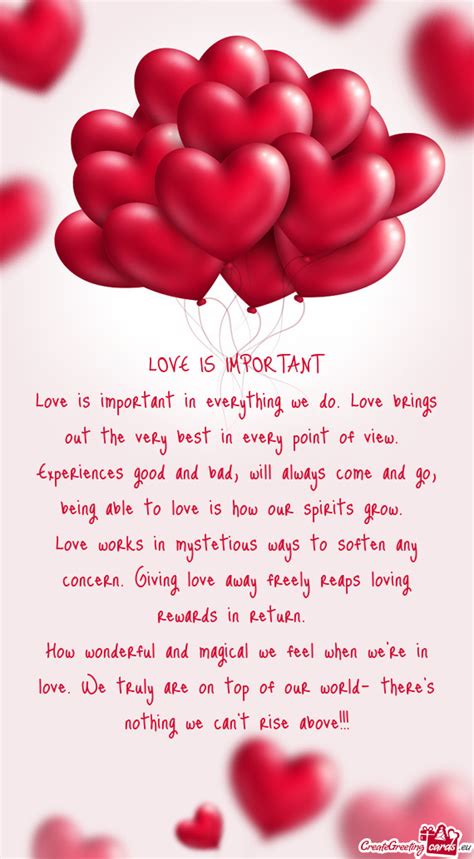 LOVE IS IMPORTANT
Love is important in everything we do. Love brings
out the very best in every point of view.
Experiences good and bad, will always come and go,
being able to love is how our spirits grow.
Love works in mystetious ways to soften any
concern. Giving love away freely reaps loving
rewards in return.
How wonderful and magical we feel when we're in
love. We truly are on top of our world- there's
nothing we can't rise above!!!
CreateGreetingcards.eu